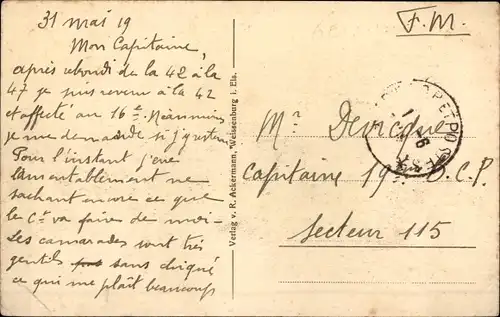 31 mai 19
Mon Capitaine,
après rebondi de la 42 à la
47 je suis revenu à la 42
et affecté au 16e. Néanmoins
je me demande si j'y resterai
Pour l'instant j'erre
lamentablement ne
sachant encore ce que
le Ct va faire de moi-
Les camarades sont très
gentils sans chiqué
ce qui me plaît beaucoup
Verlag v. R. Ackermann, Weissenburg i. Els.
F.M.
Mr
Capitaine 19 B.C.P.
Secteur 115